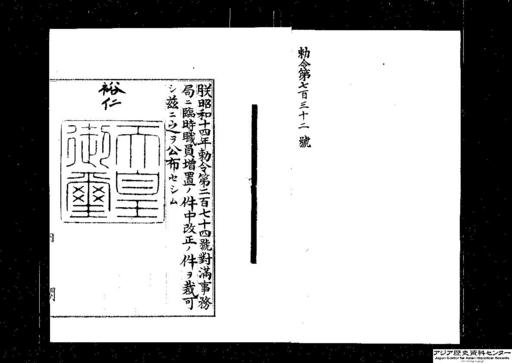 勅令第七百三十二號
朕昭和十四年勅令第二百七十四號對滿事務
局ニ臨時職員增置ノ件中改正ノ件ヲ裁可
シ茲ニ之ヲ公布セシム
裕仁
天皇
御璽
内閣
アジア歴史資料センター
Japan Center for Asian Historical Records